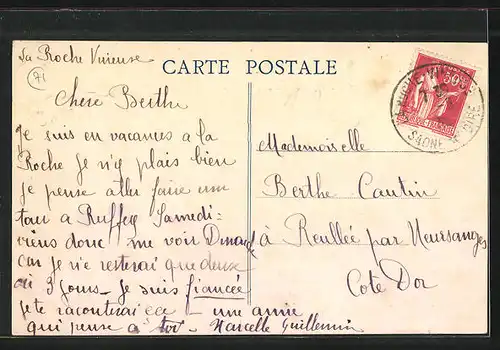 La Roche Vineuse
71
CARTE POSTALE
50c
SAÔNE ET LOIRE
Chère Berthe
Je suis en vacances a la
Roche je n'y plais bien
je pense aller faire une
tour a Ruffey Samedi-
viens donc me voir Dimanche
car je n'e resterai que deux
ou 3 jours - Je suis fiancée
je te raconterai ca - une amie
qui pense a toi - Marcelle Guillemin
Mademoiselle
Berthe Cautin
à Reullée par Meursanges
Cote Dor